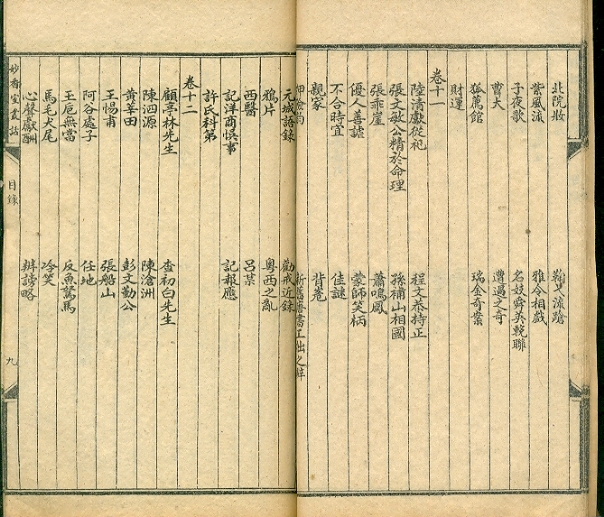 北院妝 鞠𡥉滄蹌
紫風流 雅令相戲
子夜歌 名妓薛英輓聯
曹大 遭遇之奇
狐薦館 瑞金奇業
財運
卷十一
陸清獻從祀 程文恭持正
張文敏公精於命理 孫補山相國
張乖崖 蕭鳴鳳
優人善謔 蒙師笑柄
不合時宜 佳謎
親家 背卷
元城語錄 勸戒近錄
鴉片 粵西之亂
西醫 呂某
記洋商悞事 記報應
許氏科第
卷十二
顧亭林先生 查初白先生
陳泗源 陳滄洲
黃莘田 彭文勤公
王惕甫 張船山
阿谷處子 任地
玉巵無當 反魚駑馬
馬毛犬尾 冷笑
心聲獻酬 辨謗略
妙香室叢話 目錄 九